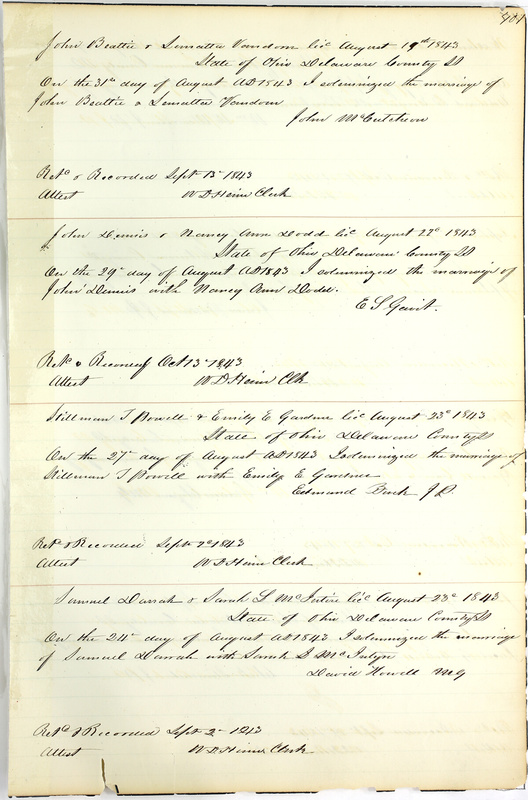 401
John Beattie & Lensattee Vansdom Lic August 19th 1843
State of Ohio Delaware County SS
On the 31st day of August AD 1843 I solemnized the marriage of
John Beattie & Lensattee Vansdom
John McCutcheon
Retd & Recorded Sept 13 1843
Attest W D Heim Clerk
John Dennis & Nancy Ann Dodd Lic August 22d 1843
State of Ohio Delaware County SS
On the 29th day of August AD 1843 I solemnized the marriage of
John Dennis with Nancy Ann Dodd.
E S Gavit.
Retd & Recorded Oct 13 1843
Attest W D Heim Clk
Stillman T Powell & Emily E Gardner Lic August 23d 1843
State of Ohio Delaware County SS
On the 27th day of August AD 1843 I solemnized the marriage of
Stillman T Powell with Emily E Gardner
Edmund Buck J.P.
Retd & Recorded Sept 7d 1843
Attest W D Heim Clerk
Samuel Darrah & Sarah L McIntire Lic August 23d 1843
State of Ohio Delaware County SS
On the 24th day of August AD 1843 I solemnized the marriage
of Samuel Darrah with Sarah L McIntyre
David Howell MG
Retd & Recorded Sept 2 1843
Attest W D Heim Clerk